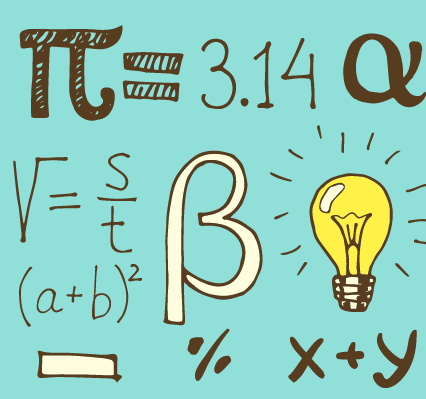 π = 3.14 α
V = s/t
β
(a+b)²
% x+y